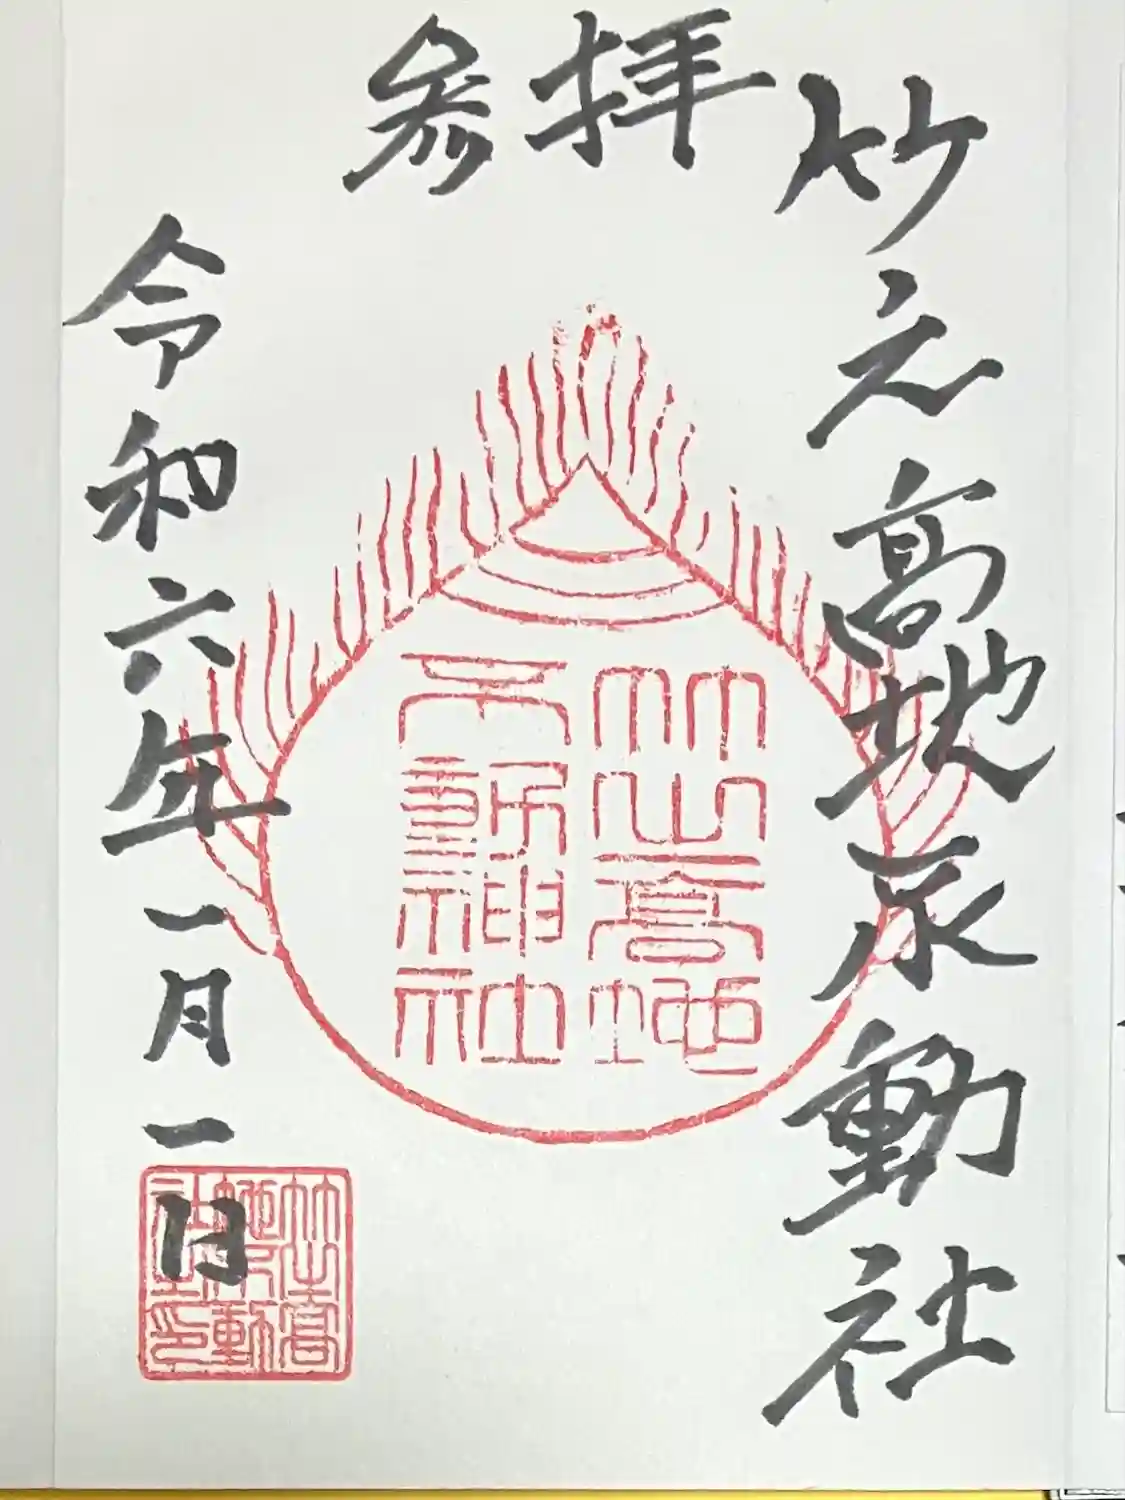 参拝
竹之高地不動社
竹之高地
不動神社
令和六年一月一日
竹之高
地不動
社之印